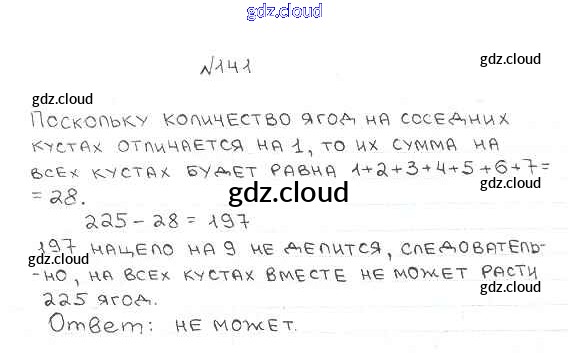 gdz.cloud
№141
gdz.cloud
gdz.cloud
Поскольку количество ягод на соседних
кустах отличается на 1, то их сумма на
всех кустах будет равна 1+2+3+4+5+6+7=
gdz.cloud
= 28.
gdz.cloud
225 - 28 = 197
197 нацело на 9 не делится, следователь-
gdz.cloud
-но, на всех кустах вместе не может расти
gdz.cloud
225 ягод.
Ответ: не может.
gdz.cloud